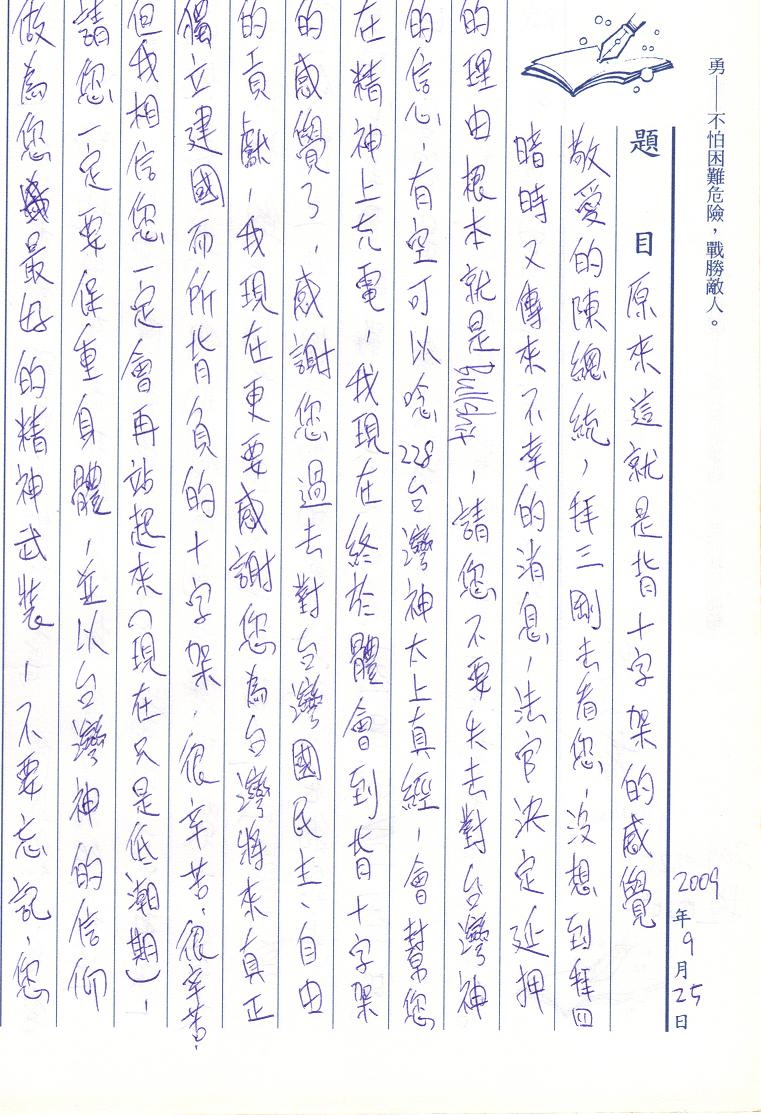 勇——不怕困難危險，戰勝敵人。
2009年9月25日
題目 原來這就是背十字架的感覺
敬愛的陳總統，拜三剛去看您，沒想到拜四
暗時又傳來不幸的消息，法官決定延押
的理由根本就是Bullshit，請您不要失去對台灣神
的信心，有空可以唸228台灣神太上真經，會幫您
在精神上充電，我現在終於體會到背十字架
的感覺了，感謝您過去對台灣國民主、自由
的貢獻，我現在更要感謝您為台灣將來真正
獨立建國而所背負的十字架，很辛苦，很辛苦，
但我相信您一定會再站起來(現在只是低潮期)，
請您一定要保重身體，並以台灣神的信仰
做為您最好的精神武裝，不要忘記，您